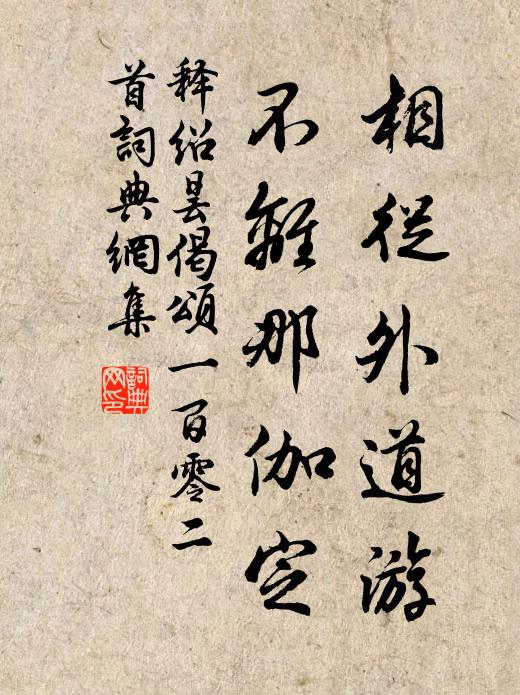 相從外道游
不離那伽定
释紹曇偈頌一百零二
首詞典網集
詞典
网印